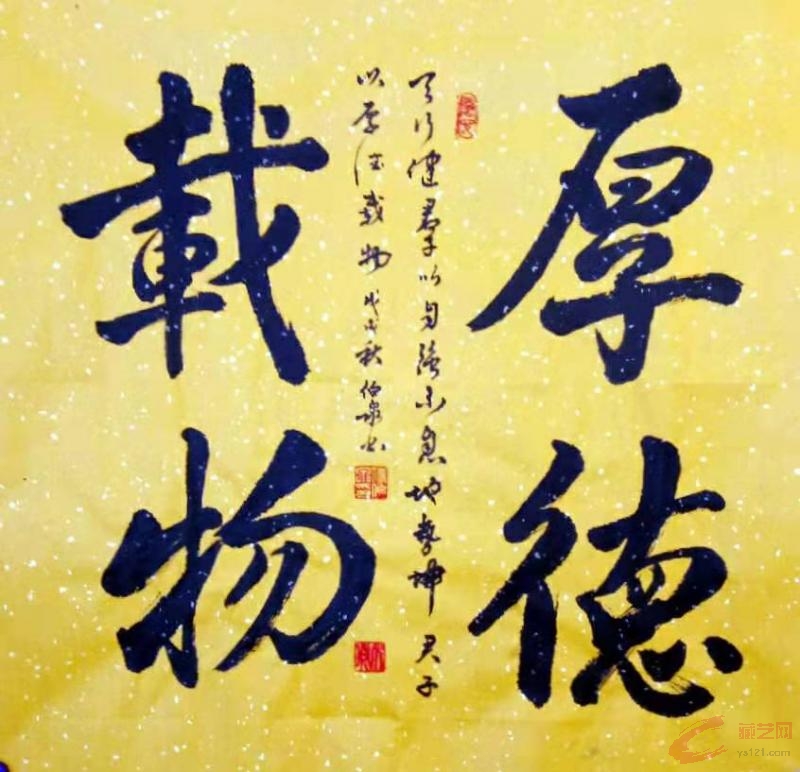 厚德
載物
天行健君子以自强不息地势坤君子
以厚德载物戊戌秋伯泉书
藏艺网
ys121.com